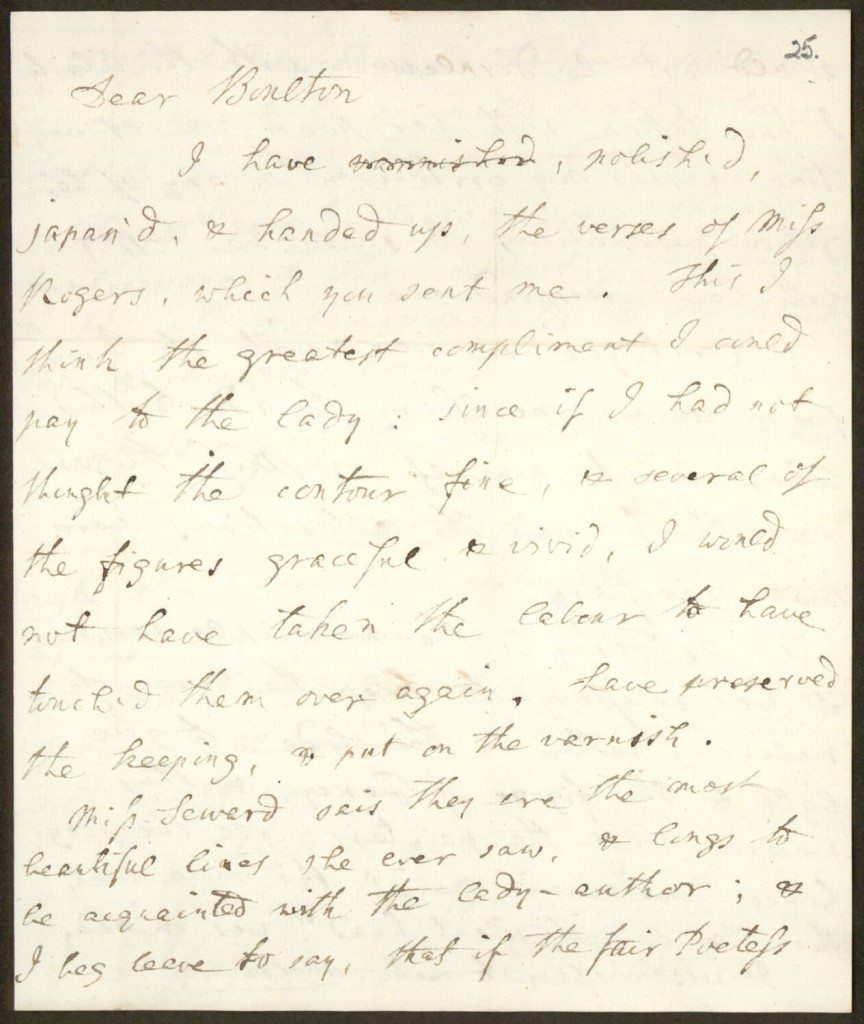 25.
Dear Boulton
I have varnished, polish'd,
japan'd, & handed up, the verses of Miss
Rogers, which you sent me. This I
think the greatest compliment I could
pay to the lady: since if I had not
thought the contour fine, & several of
the figures graceful & vivid, I would
not have taken the labour to have
touch'd them over again, have preserved
the keeping, & put on the varnish.
Miss Seward sais they are the most
beautiful lines she ever saw, & longs to
be acquainted with the lady-author; &
I beg leave to say, that if the fair Poetess